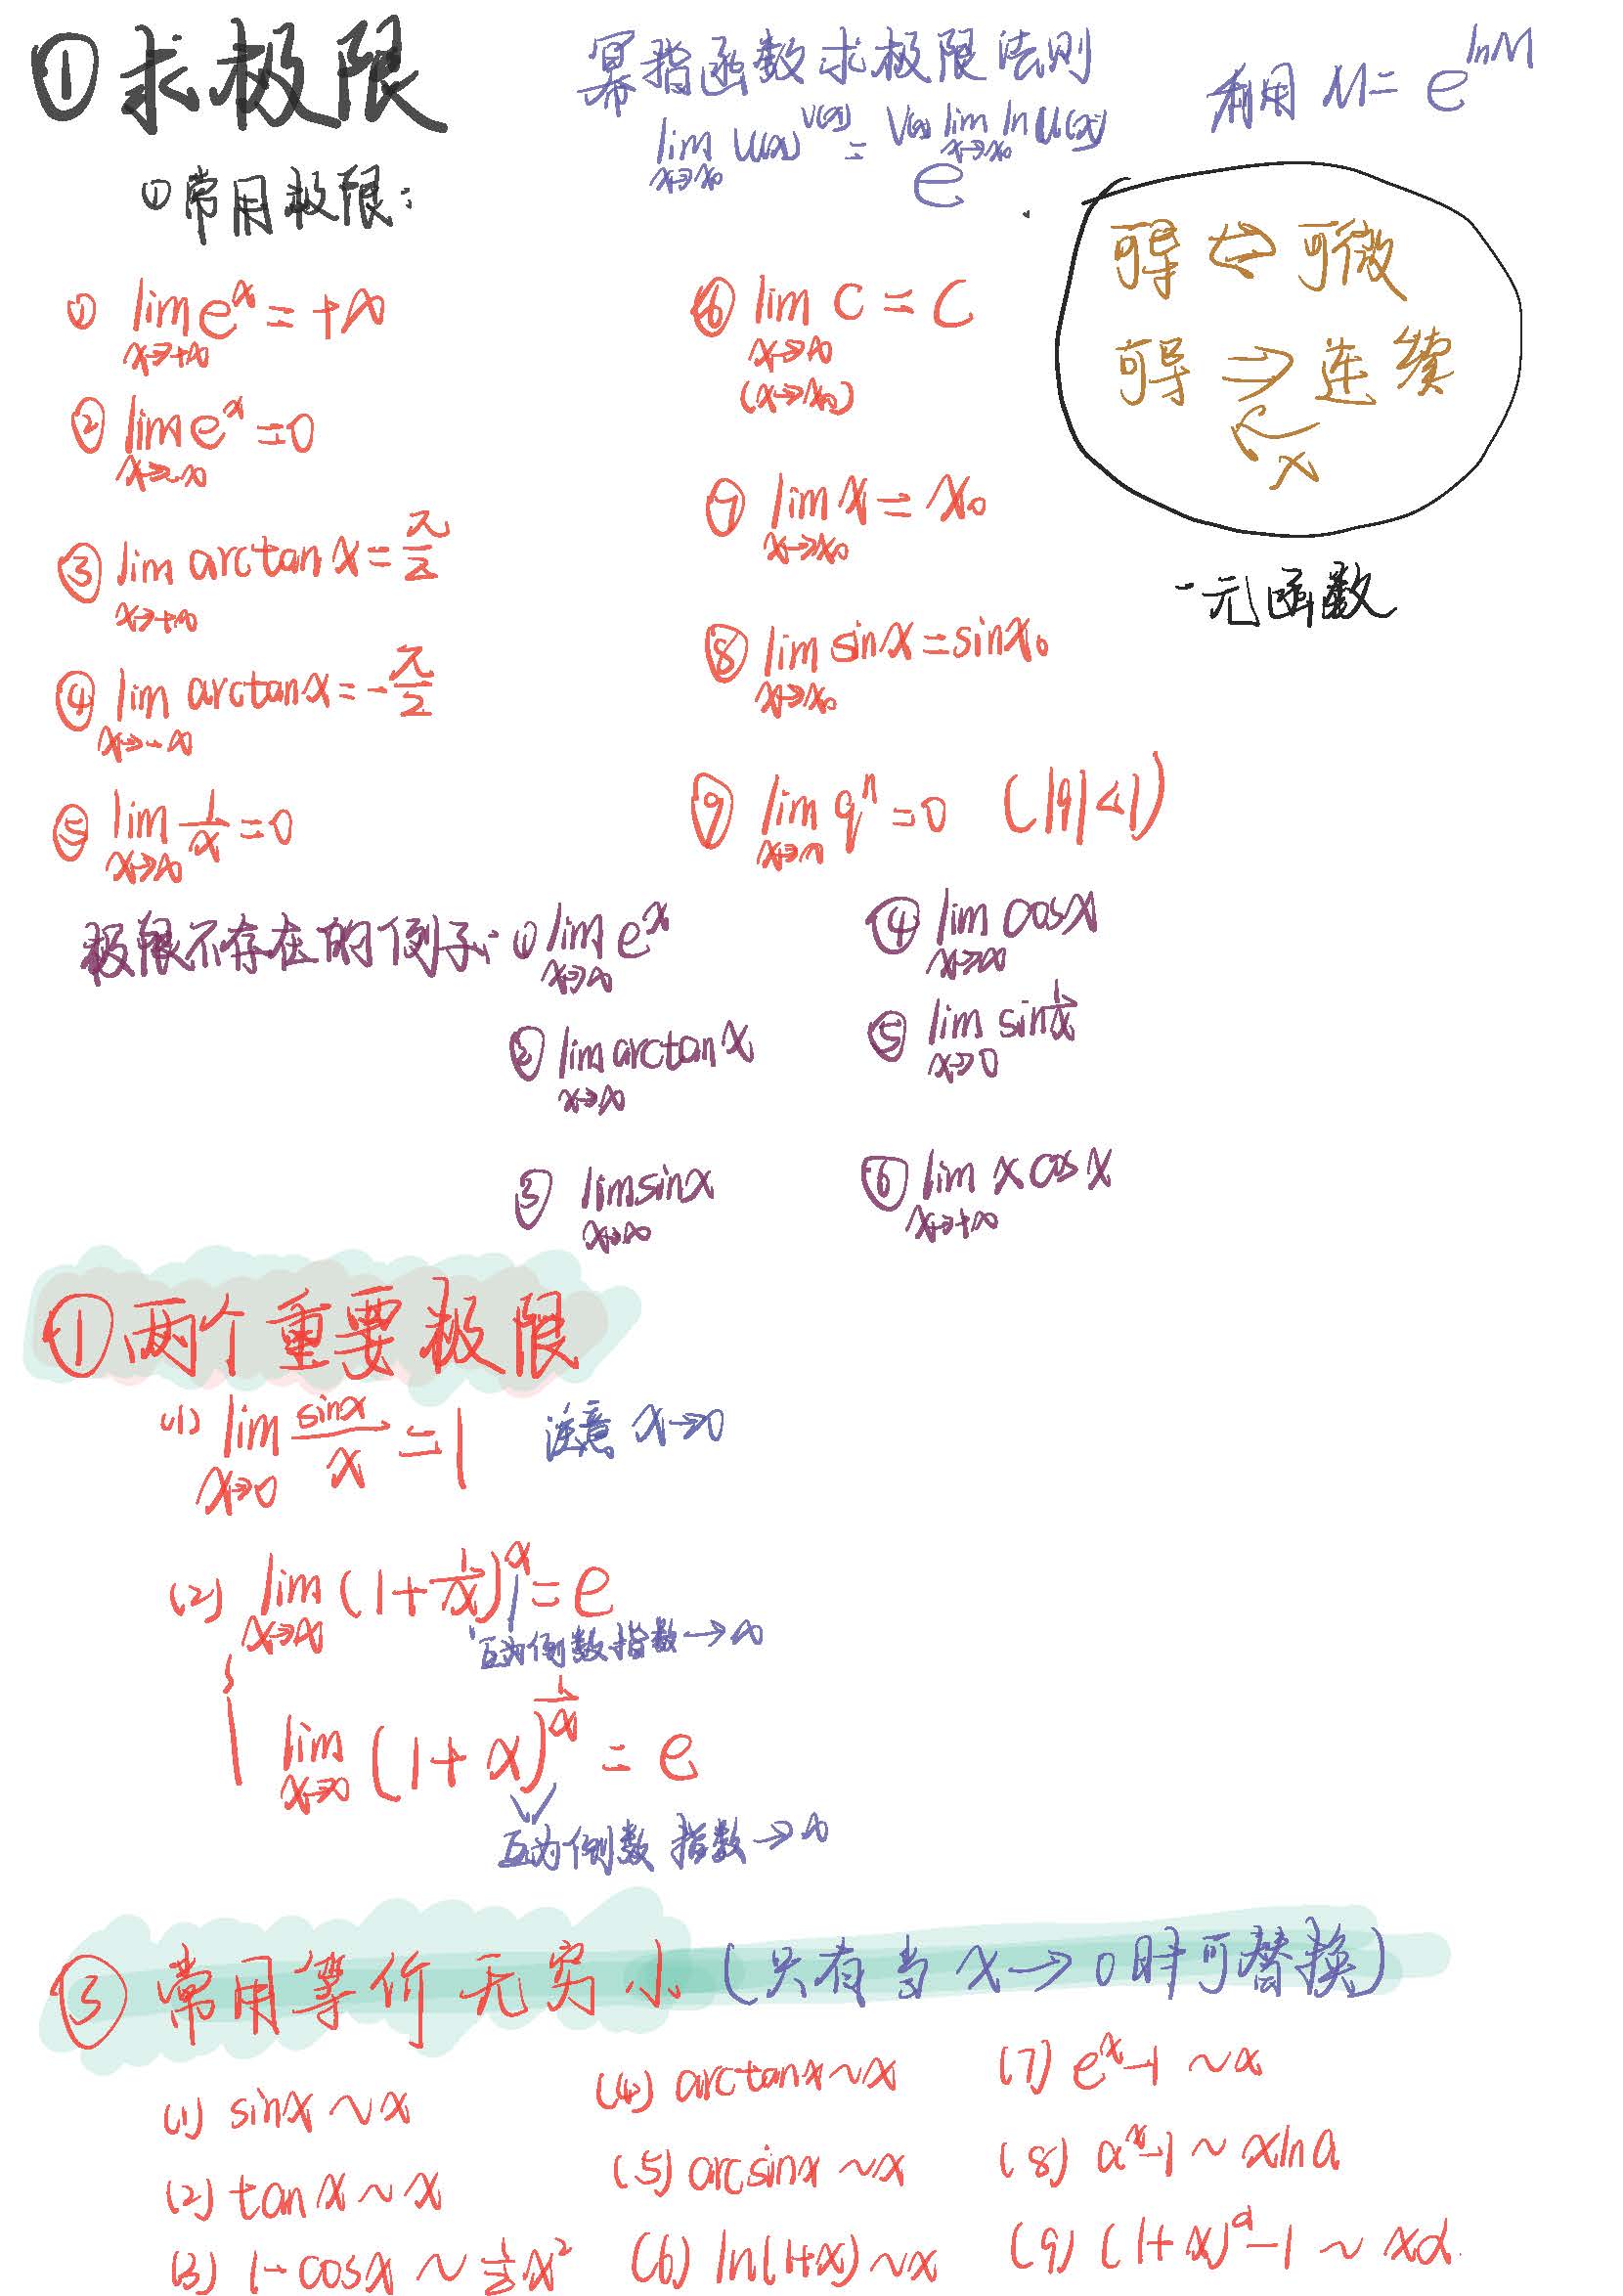 ①求极限
幂指函数求极限法则 利用 M = e^{lnM}
lim_{x→x₀} u(x)^{v(x)} = e^{v(x) lim_{x→x₀} ln u(x)}
①常用极限:
可导 ⇔ 可微
可导 ⇒ 连续
← x
一元函数
① lim_{x→+∞} e^x = +∞
② lim_{x→-∞} e^x = 0
③ lim_{x→+∞} arctan x = π/2
④ lim_{x→-∞} arctan x = -π/2
⑤ lim_{x→∞} 1/x = 0
⑥ lim_{x→∞ (x→x₀)} C = C
⑦ lim_{x→x₀} x = x₀
⑧ lim_{x→x₀} sinx = sinx₀
⑨ lim_{x→n} q^n = 0 (|q|<1)
极限不存在的例子: ① lim_{x→∞} e^x
② lim_{x→∞} arctan x
③ lim_{x→∞} sinx
④ lim_{x→∞} cosx
⑤ lim_{x→0} sin 1/x
⑥ lim_{x→+∞} x cos x
①两个重要极限
(1) lim_{x→0} sinx/x = 1 注意 x→0
(2) lim_{x→∞} (1+1/x)^x = e
互为倒数 指数→∞
lim_{x→0} (1+x)^{1/x} = e
互为倒数 指数→∞
③常用等价无穷小(只有当x→0时可替换)
(1) sinx ~ x
(2) tanx ~ x
(3) 1-cosx ~ ½x²
(4) arctanx ~ x
(5) arcsinx ~ x
(6) ln(1+x) ~ x
(7) e^x-1 ~ x
(8) a^x-1 ~ xlna
(9) (1+x)^α-1 ~ xα